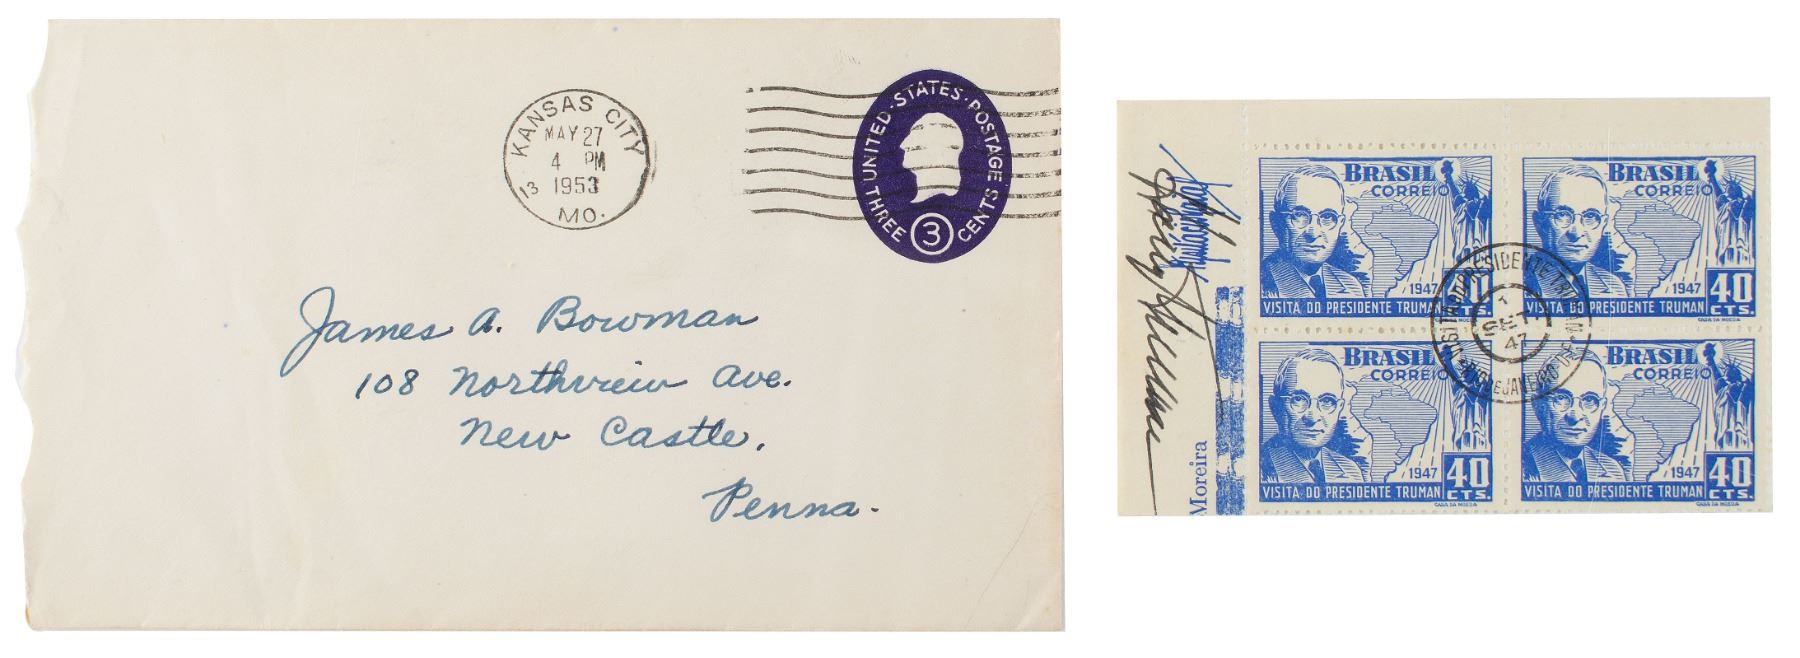 KANSAS CITY
MAY 27
4 PM
1953
13
MO.
UNITED · STATES · POSTAGE
THREE 3 CENTS
James A. Bowman
108 Northview Ave.
New Castle,
Penna.
Harry Truman
Moreira
BRASIL
CORREIO
1947
40
CTS.
VISITA DO PRESIDENTE TRUMAN
CASA DA MOEDA
BRASIL
CORREIO
1947
40
CTS.
VISITA DO PRESIDENTE TRUMAN
CASA DA MOEDA
VISITA DO PRESIDENTE TRUMAN
1
SET.
47
RIO DE JANEIRO D.F.
BRASIL
CORREIO
1947
40
CTS.
VISITA DO PRESIDENTE TRUMAN
CASA DA MOEDA
BRASIL
CORREIO
1947
40
CTS.
VISITA DO PRESIDENTE TRUMAN
CASA DA MOEDA